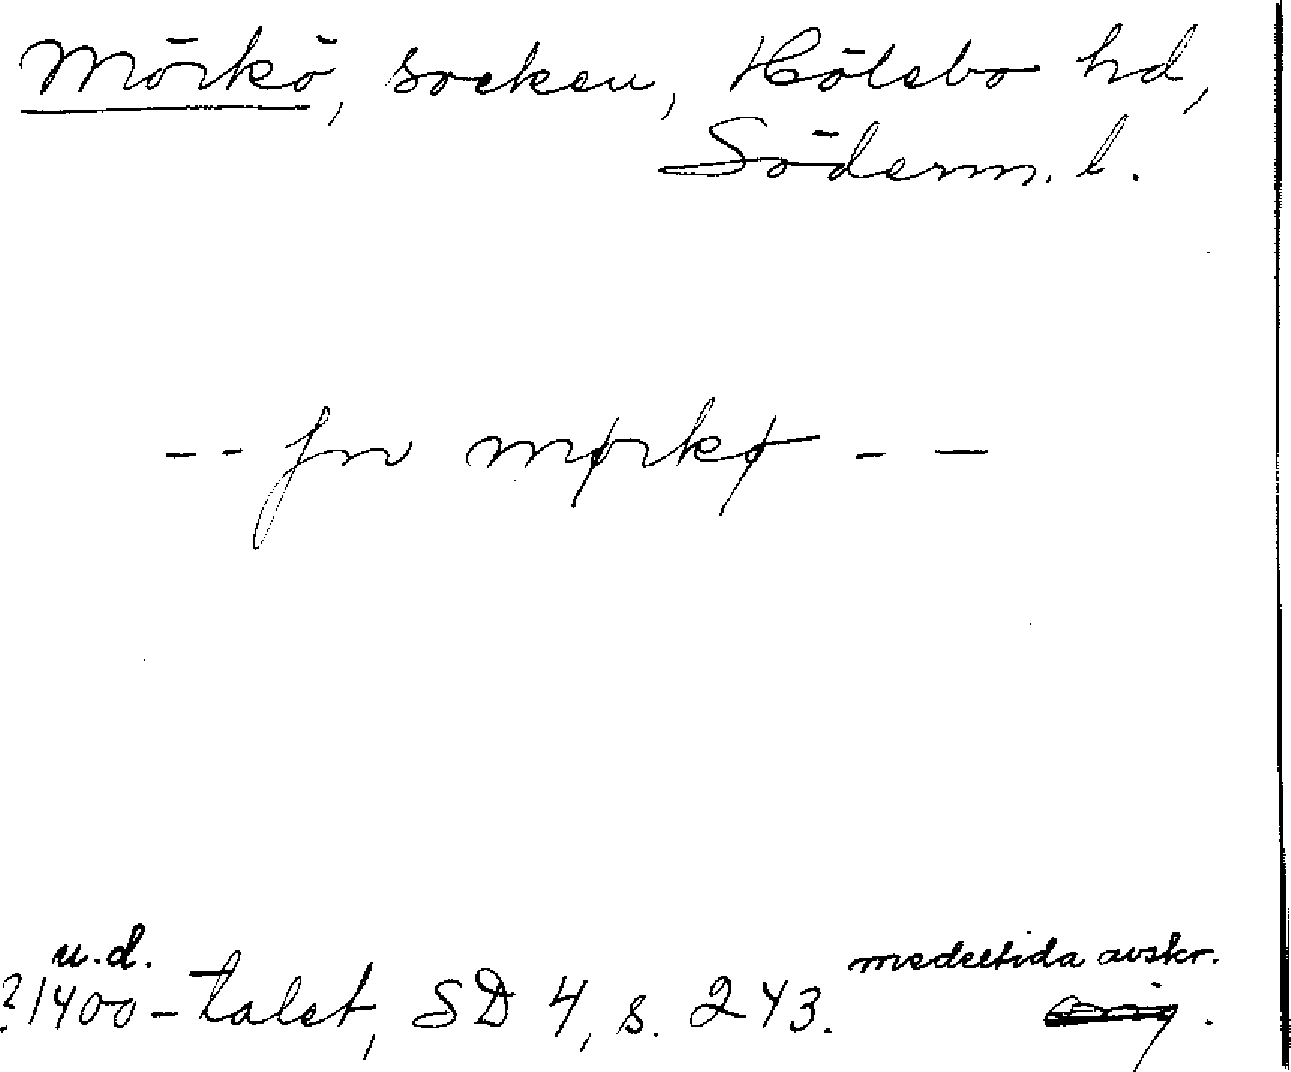 Mörkö, socken, Hölebo hd,
Söderm. l.
-- fru mørkø --
u.d.
?1400-talet, SD 4, s. 243.
medeltida avskr.
orig.